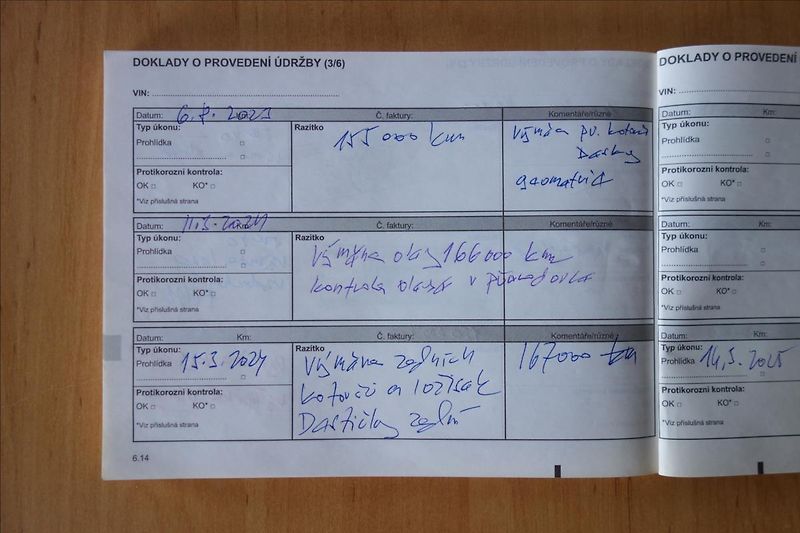 DOKLADY O PROVEDENÍ ÚDRŽBY (3/6)
VIN:
Datum: 6.8.2023 Č. faktury: Komentáře/různé
Typ úkonu: Razítko
155 000 km
Prohlídka
Výměna př. kotouč
Destky
geometrie
Protikorozní kontrola:
OK KO*
*Viz příslušná strana
Datum: 11.3.2024 Č. faktury: Komentáře/různé
Typ úkonu: Razítko
Výměna oleje 166000 km
Prohlídka
kontrola oleje v převodovce
Protikorozní kontrola:
OK KO*
*Viz příslušná strana
Datum: Km: Č. faktury: Komentáře/různé
Typ úkonu: Razítko
15.3.2024
Výměna zadních
167000 km
Prohlídka
kotoučů a ložisek
Destičky zadní
Protikorozní kontrola:
OK KO*
*Viz příslušná strana
6.14
DOKLADY O PROVEDENÍ
VIN:
Datum: Km:
Typ úkonu:
Prohlídka
Protikorozní kontrola:
OK KO*
*Viz příslušná strana
Datum: Km:
Typ úkonu:
Prohlídka
Protikorozní kontrola:
OK KO*
*Viz příslušná strana
Datum: Km:
Typ úkonu:
Prohlídka 14.3.2025
Protikorozní kontrola:
OK KO*
*Viz příslušná strana